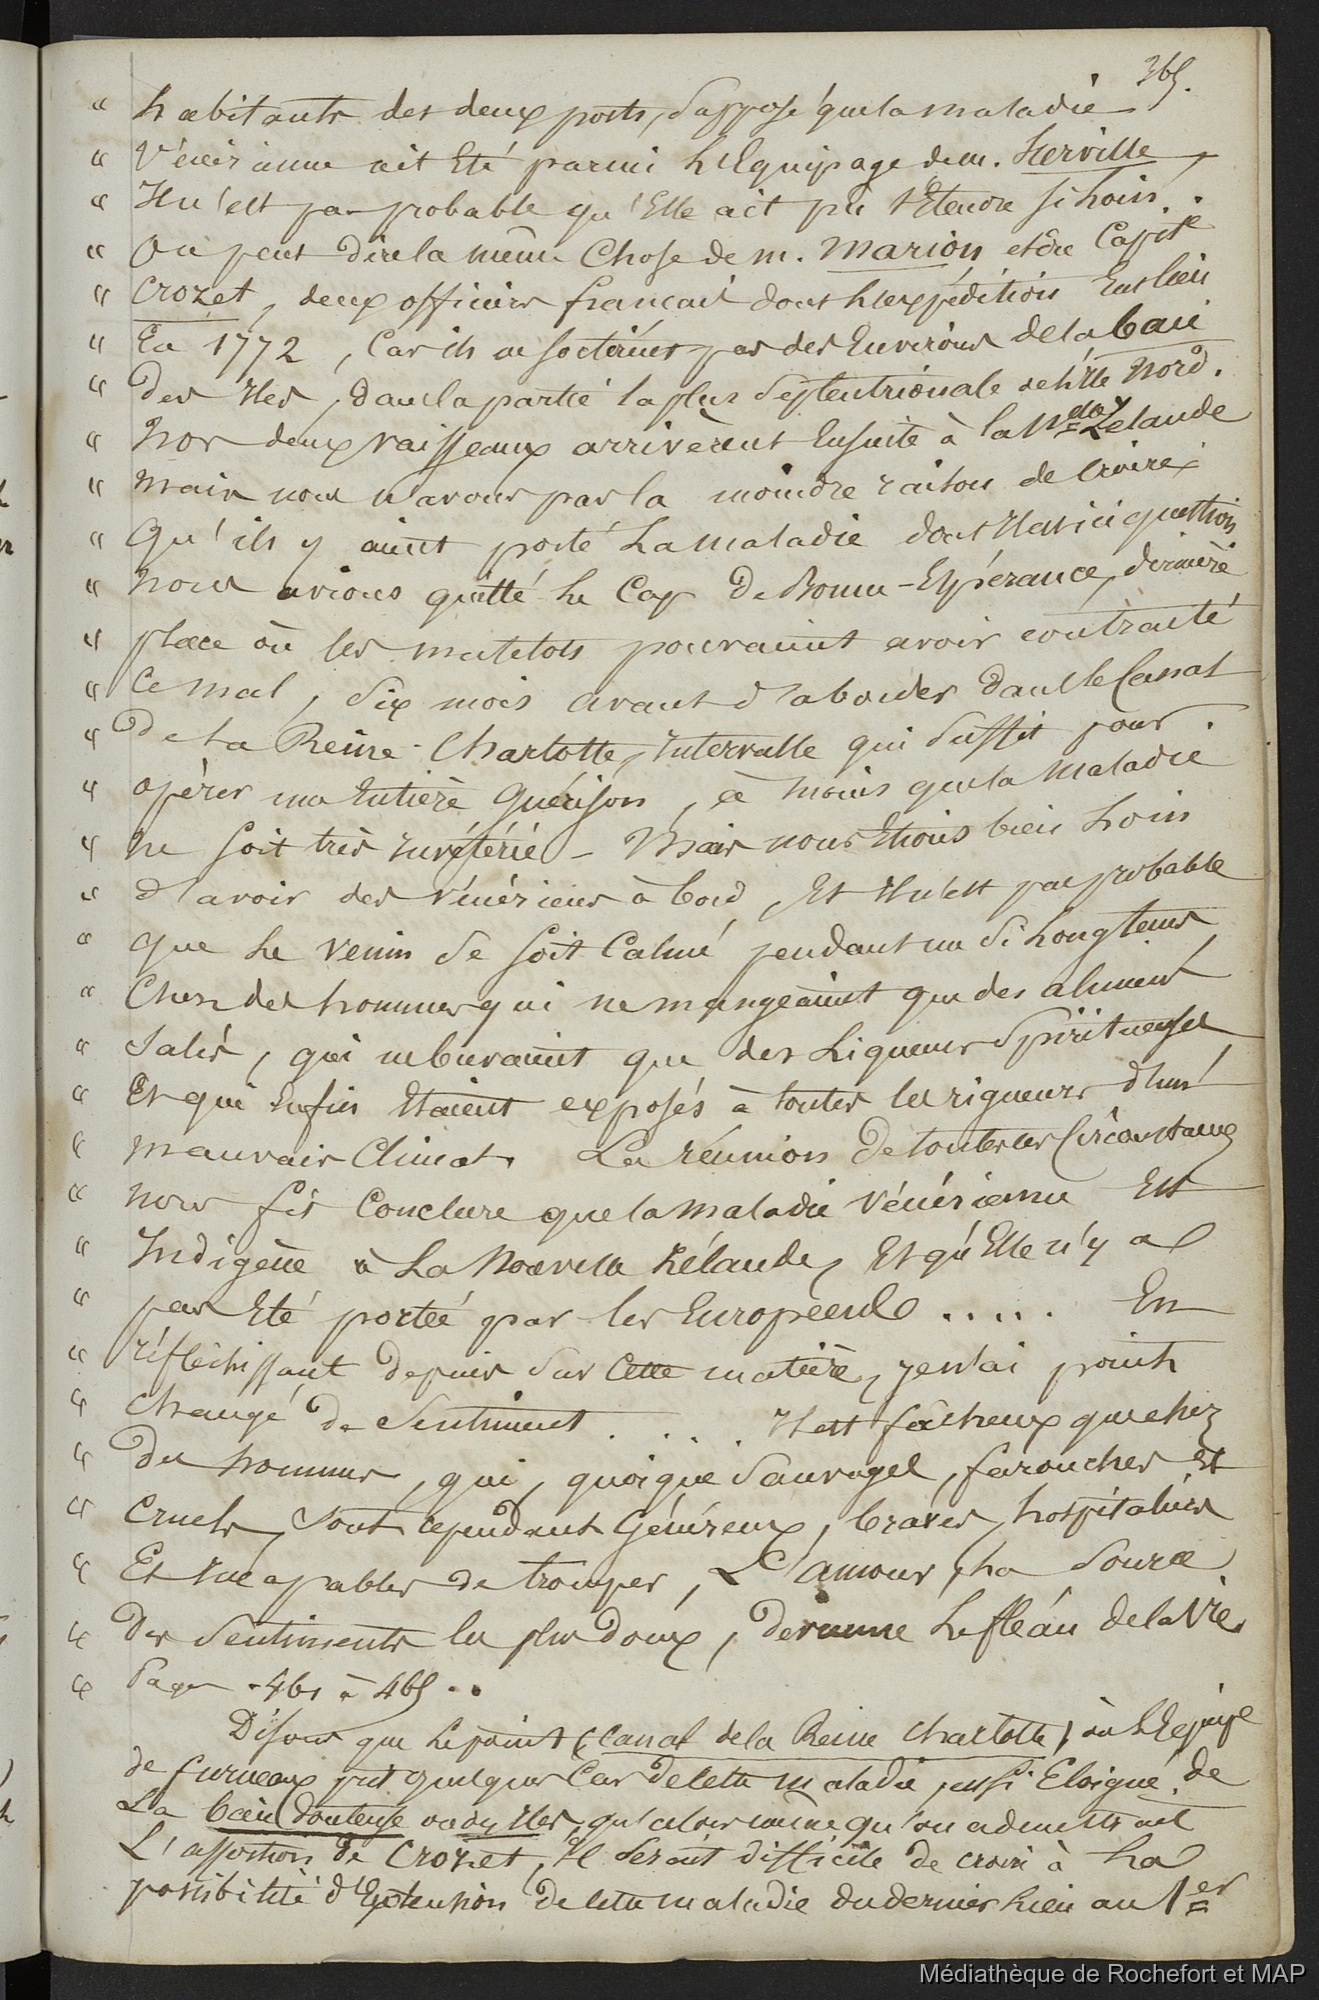 365.
" habitants des deux ports, Suppose' que la maladie
" Vénérienne ait Eté parmi L'Equipage de m. Surville,
" Il n'est pas probable qu'Elle ait pu s'Etendre si Loin. .
" On peut dire la même Chose de m. Marion et du Capite
" Crozet, deux officiers français dont L'expédition Eut lieu
" En 1772, Car ils ne sortirent pas des Environs de la baie
" Des Iles, dans la partie la plus Septentrionale de l'ile Nord.
" Nos deux vaisseaux arrivèrent Ensuite à la Nlle Zélande
" Mais nous n'avons pas la moindre raison de Croire
" Qu'ils y aient porté La maladie dont Il est ici question
" Nous avions quitté Le Cap De Bonne-Espérance, dernière
" place où les matelots pouvaient avoir contracté
" Ce mal, Six mois avant d'aborder dans le Canal
" De La Reine-Charlotte, Intervalle qui Suffit pour
" opérer une Entière Guérison, à moins que la maladie
" Ne soit très Invétérée - Mais nous Etions bien Loin
" d'avoir des Vénériens à bord, Et Il n'est pas probable
" que Le Venin Se soit Calmé pendant un Si Longtems
" Chez des hommes qui ne mangeaient que des aliments
" Salés, qui ne buvaient que des Liqueurs Spiritueuses
" Et qui Enfin Etaient exposés à toutes les rigueurs d'un
" mauvais Climat. La réunion de toutes ces Circonstances
" Nous fit Conclure que la maladie Vénérienne Est
" Indigène à La Nouvelle Zélande, Et qu'Elle n'y a
" pas Eté portée par les Européens ..... En
" réfléchissant depuis Sur Cette matière, je n'ai point
" Changé De Sentiment .... Il est fâcheux que chez
" Des hommes, qui, quoique Sauvages, farouches et
" Cruels, Sont cependant Généreux, braves, hospitaliers
" Et Incapables de tromper, L'amour, La Source
" Des Sentiments les plus doux, devienne Le fléau de la Vie,
" Pages 461 à 465 ..
Disons que Le point (Canal de la Reine Charlotte) où L'Equipe
de furneaux prit quelques Cas de Cette maladie, est si Eloigné de
La baie Douteuse ou des Iles, qu'alors même qu'on admettrait
L'assertion de Crozet, Il Serait difficile de croire à La
possibilité d'Extension De Cette maladie du dernier Lieu au 1er